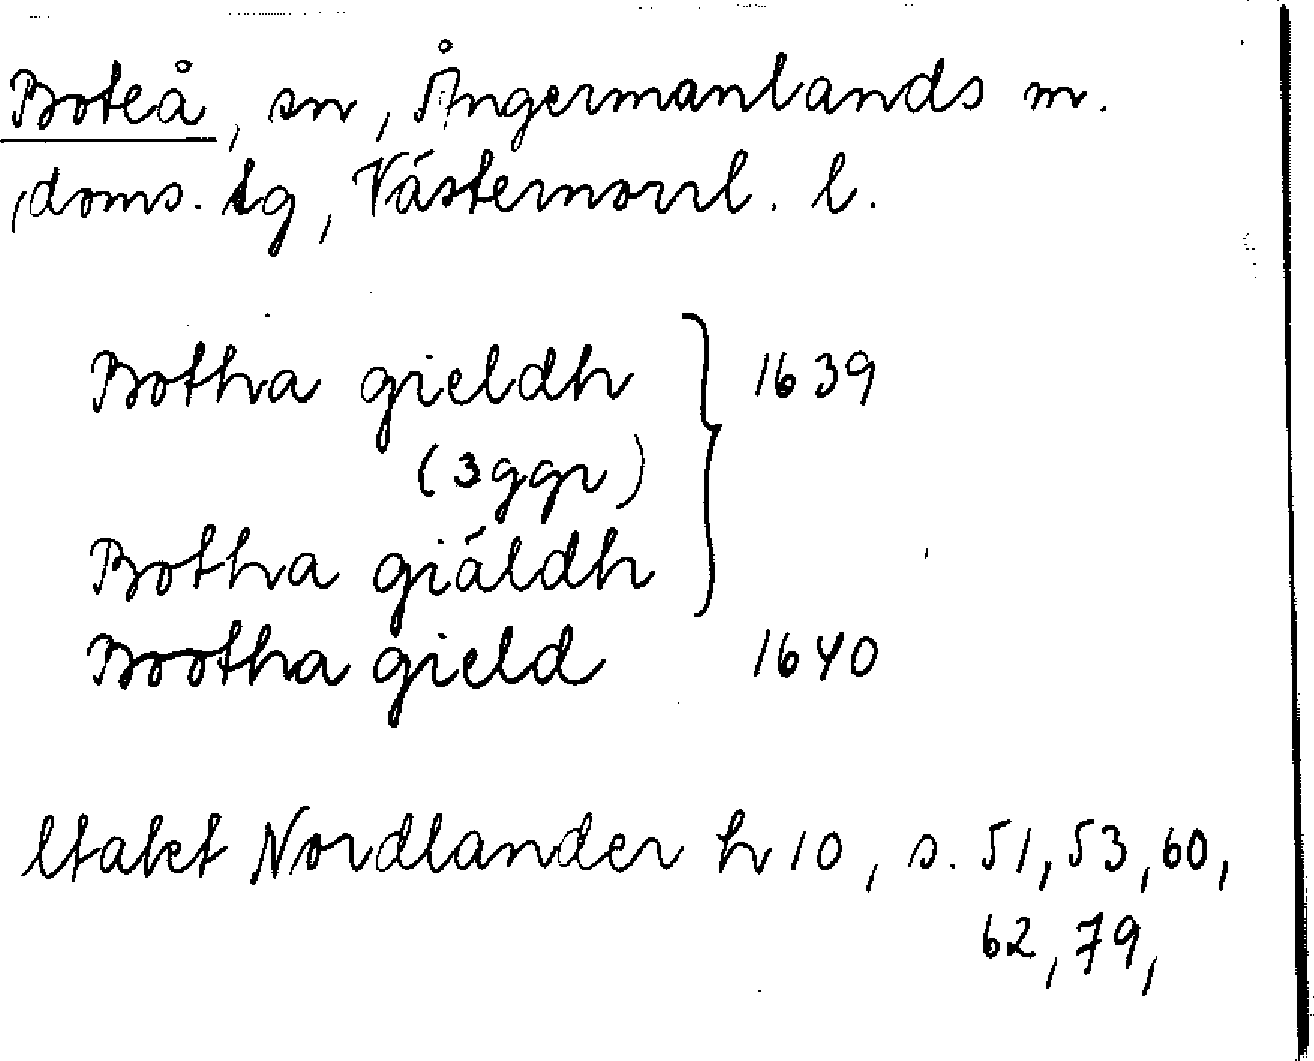 Boteå, sn, Ångermanlands m.
doms. tg, Västernorrl. l.
Botha gieldh } 1639
(3 ggr)
Botha giäldh
Bootha gield 1640
Utakt Nordlander h 10, s. 51, 53, 60,
62, 79,